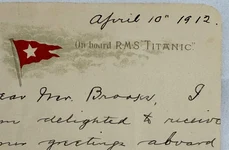 April 10th 1912.
On board R.M.S. "TITANIC"
ear Mr. Brooks, I
m delighted to receive
greetings aboard